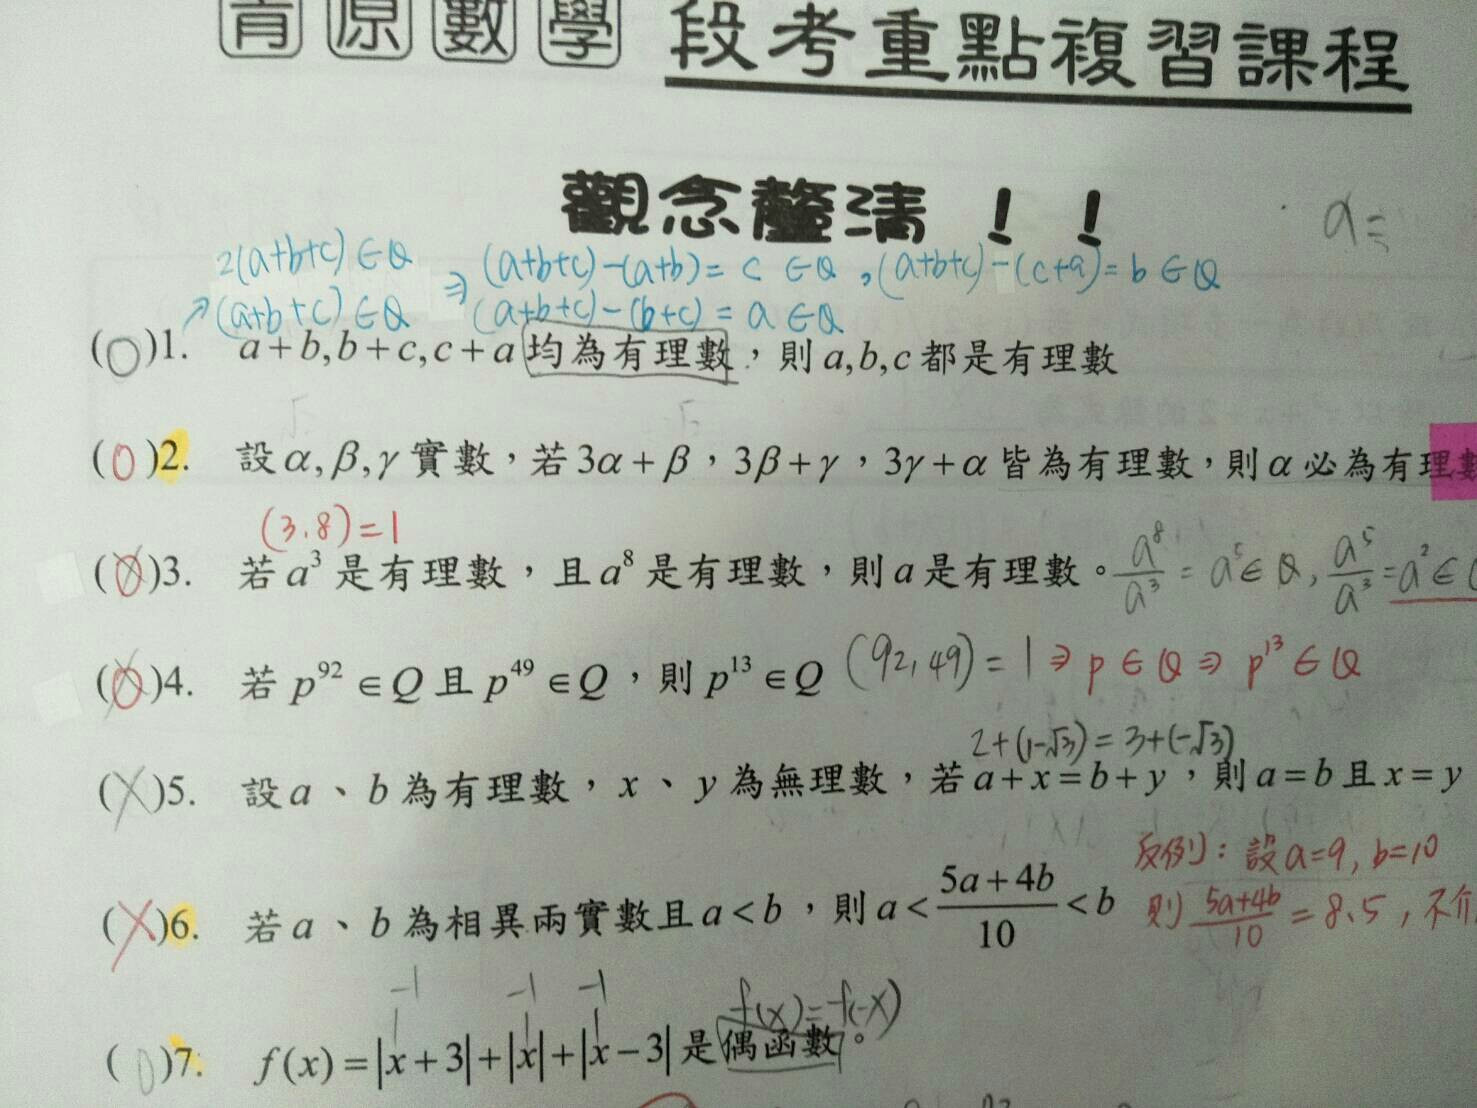 育原數學 段考重點複習課程
觀念釐清！！
a=
2(a+b+c)∈Q ⇒ (a+b+c)-(a+b)= c ∈Q , (a+b+c)-(c+a)= b ∈Q
↗(a+b+c)∈Q (a+b+c)-(b+c) = a ∈Q
(O)1. a+b,b+c,c+a 均為有理數，則 a,b,c 都是有理數
(O)2. 設 α,β,γ 實數，若 3α+β，3β+γ，3γ+α 皆為有理數，則 α 必為有理數
(3.8)=1
(O)3. 若 a³ 是有理數，且 a⁸ 是有理數，則 a 是有理數。 a⁸/a³ = a⁵∈Q, a⁵/a³ = a²∈Q
(O)4. 若 p⁹² ∈Q 且 p⁴⁹ ∈Q，則 p¹³ ∈Q (92,49) = 1 ⇒ p ∈ Q ⇒ p¹³ ∈ Q
2+(1-√3) = 3+(-√3)
(X)5. 設 a、b 為有理數，x、y 為無理數，若 a+x=b+y，則 a=b 且 x=y
反例：設 a=9, b=10
(X)6. 若 a、b 為相異兩實數且 a<b，則 a< (5a+4b)/10 <b 則 (5a+4b)/10 = 8.5，不介
-1 -1 -1 f(x)=f(-x)
(O)7. f(x)=|x+3|+|x|+|x-3| 是偶函數。